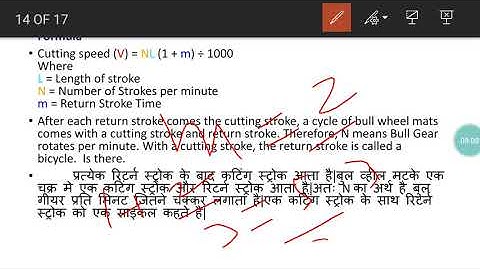 14 OF 17
Formula
• Cutting speed (V) = NL (1 + m) ÷ 1000
Where
L = Length of stroke
N = Number of Strokes per minute
m = Return Stroke Time
• After each return stroke comes the cutting stroke, a cycle of bull wheel mats
comes with a cutting stroke and return stroke. Therefore, N means Bull Gear
rotates per minute. With a cutting stroke, the return stroke is called a
bicycle. Is there.
• प्रत्येक रिटर्न स्ट्रोक के बाद कटिंग स्ट्रोक आता है|बुल व्हील मटके एक
चक्र मे एक कटिंग स्ट्रोक और रिटर्न स्ट्रोक आता है|अतः N का अर्थ है बुल
गीयर प्रति मिनट जितने चक्कर लगाता है|एक कटिंग स्ट्रोक के साथ रिटर्न
स्ट्रोक को एक साइकल कहते है|